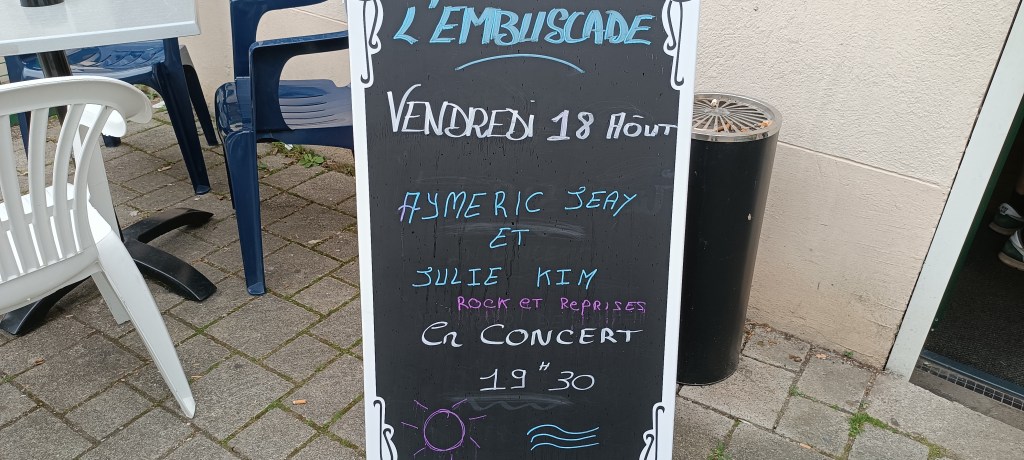 L'EMBUSCADE
VENDREDI 18 AÔUT
AYMERIC SEAY
ET
JULIE KIM
ROCK ET REPRISES
En CONCERT
19H30